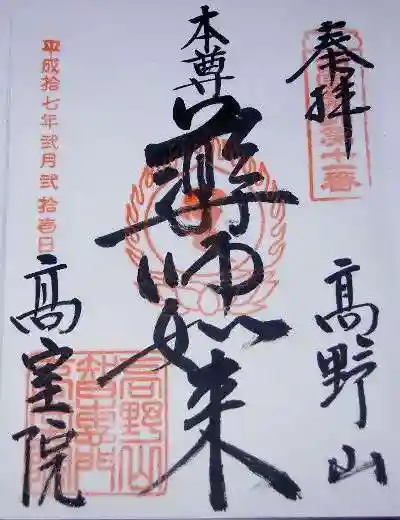 奉拝
第十一番
髙野山
本尊
薬師如来
平成拾七年弐月弐拾壱日
髙室院
高野山